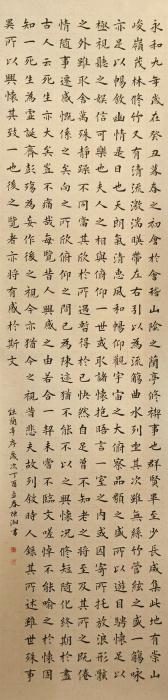 永和九年歲在癸丑暮春之初會於會稽山陰之蘭亭修禊事也群賢畢至少長咸集此地有崇山
峻嶺茂林修竹又有清流激湍映帶左右引以為流觴曲水列坐其次雖無絲竹管絃之盛一觴一詠
亦足以暢敘幽情是日也天朗氣清惠風和暢仰觀宇宙之大俯察品類之盛所以遊目騁懷足以
極視聽之娛信可樂也夫人之相與俯仰一世或取諸懷抱晤言一室之內或因寄所托放浪形骸
之外雖取舍萬殊靜躁不同當其欣於所遇暫得於己快然自足曾不知老之將至及其所之既倦
情隨事遷感慨係之矣向之所欣俯仰之間已為陳迹猶不能不以之興懷況修短隨化終期於盡
古人云死生亦大矣豈不痛哉每覽昔人興感之由若合一契未嘗不臨文嗟悼不能喻之於懷固
知一死生為虛誕齊彭殤為妄作後之視今亦猶今之視昔悲夫故列敘時人錄其所述雖世殊事
異所以興懷其致一也後之覽者亦將有感於斯文
蘭亭序歲次丁酉書